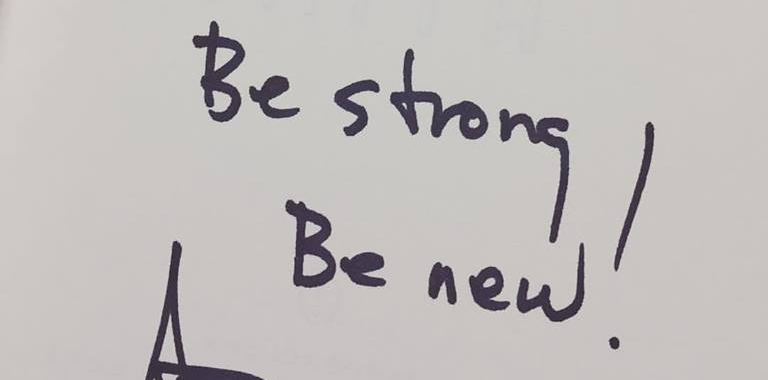 Be strong
Be new!